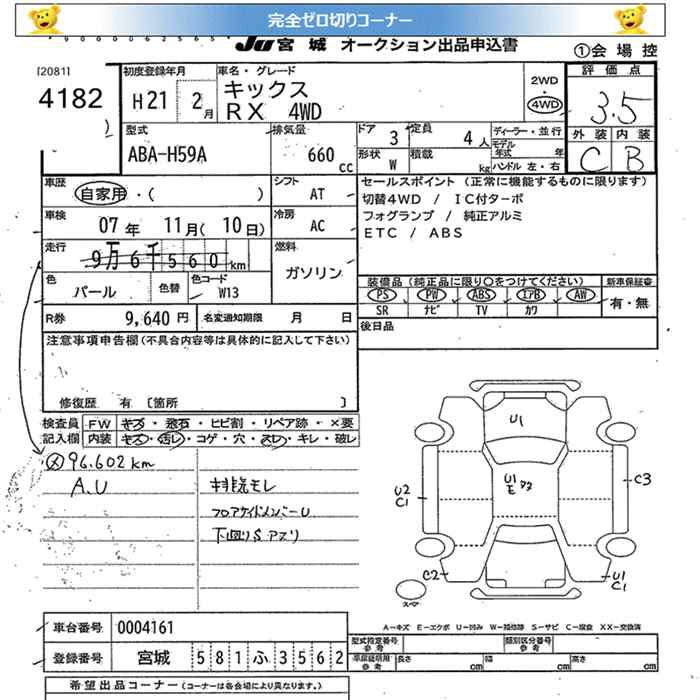 完全ゼロ切りコーナー
0000062565
JU 宮城 オークション出品申込書
①会場控
[2081]
4182
初度登録年月
H21 2月
車名・グレード
キックス
RX 4WD
2WD
・
4WD
評価点
3.5
外装 内装
C B
型式
ABA-H59A
排気量
660 cc
ドア 3
定員 4人
形状 W
積載 kg
ディーラー・並行
モデル年式 年
ハンドル 左・右
車歴
自家用・( )
シフト AT
車検
07年 11月(10日)
冷房 AC
走行
9万6千560km
燃料
ガソリン
色
パール
色替
色コード
W13
R券
9,640円
名変通知期限 月 日
セールスポイント (正常に機能するものに限ります)
切替4WD / IC付ターボ
フォグランプ / 純正アルミ
ETC / ABS
装備品(純正品に限り○をつけてください)
新車保証書
PS PW ABS エアB AW
SR ナビ TV カワ
有・無
後日品
注意事項申告欄(不具合内容等は具体的に記入して下さい)
修復歴 有 [箇所 ]
検査員
記入欄
FW キズ・飛石・ヒビ割・リペア跡・×要
内装 キズ・汚レ・コゲ・穴・スレ・キレ・破レ
96.602km
A.U
排気モレ
フロアサイドメンバーU
下回りSアリ
U1
U1
E
U2
C1
C3
C2
U1
C1
スペア
A-キズ E-エクボ U-凹み W-補修跡 S-サビ C-腐食 XX-交換済
車台番号 0004161
登録番号 宮城 581ふ3562
型式指定番号
参考
類別区分番号
参考
車庫証明用
参考
長さ cm
幅 cm
高さ cm
希望出品コーナー (コーナーは各会場により異なります。)